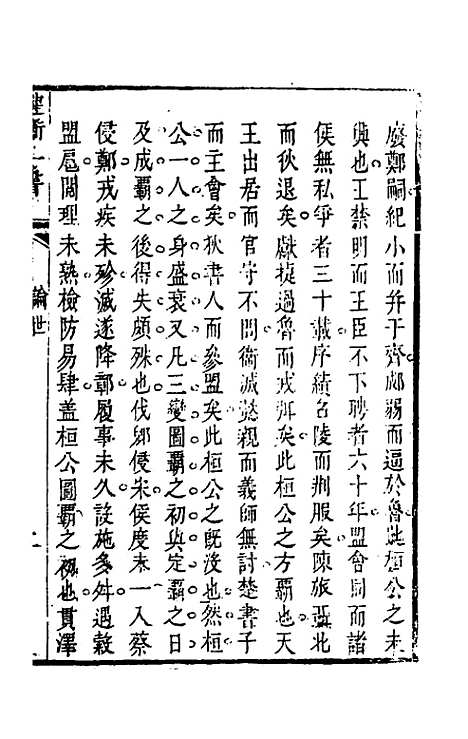 廢鄭嗣紀小而并于齊郕弱而逼於魯此桓公之未
興也王禁明而王臣不下聘者六十年盟會同而諸
侯無私爭者三十載序績召陵而荆服矣陳旅聶北
而狄退矣獻捷過魯而戎弭矣此桓公之方覇也天
王出居而官守不問衞滅懿親而義師無討楚書子
而主會矣狄書人而參盟矣此桓公之旣没也然桓
公一人之身盛衰又凡三變圖覇之初與定覇之日
及成覇之後得失頗殊也伐郳侵宋侯度未一入蔡
侵鄭戎疾未殄滅遂降鄣履事未久設施多舛遇穀
盟扈閱理未熟檢防易肆葢桓公圖覇之初也貫澤
論世